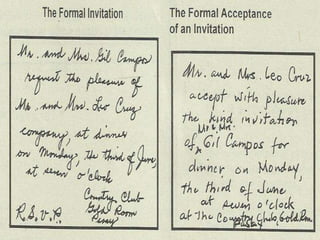 The Formal Invitation
Mr. and Mrs. Gil Campos
request the pleasure of
Mr. and Mrs. Leo Cruz
company, at dinner
on Monday, the third of June,
at seven o'clock
Country Club
Gold Room
Pasay
R.S.V.P.
The Formal Acceptance
of an Invitation
Mr. and Mrs. Leo Cruz
accept with pleasure
the kind invitation
Mr. & Mrs.
of Gil Campos for
dinner on Monday,
the third of June
at seven o'clock
at The Country Club, Gold Room
Pasay